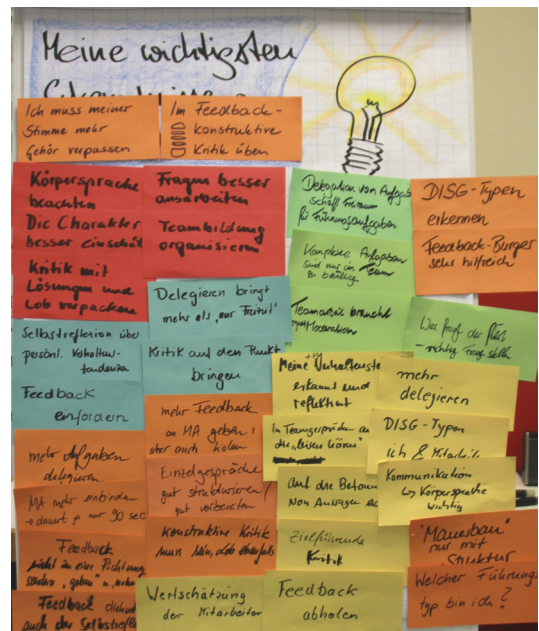 Meine wichtigsten
Ich muss meiner
Stimme mehr
Gehör verpassen
Im Feedback-
konstruktive
Kritik üben
Körpersprache
beachten
Die Charakter
besser einschät
Kritik mit
Lösungen und
Lob verpacken
Fragen besser
ausarbeiten
Teambildung
organisieren
Delegation von Aufgaben
schafft Freiraum
für Führungsaufgaben
Komplexe Aufgaben
sind nur im Team
zu
DISG-Typen
erkennen
Feedback-Burger
sehr hilfreich
Delegieren bringt
mehr als "nur Freizeit"
Teamarbeit braucht
Moderation
Wer fragt der führt
richtig Frage stellen
Selbstreflexion über
persönl. Verhaltens-
tendenzen
Kritik auf den Punkt
bringen
Feedback
einfordern
Meine Verhaltenste
erkannt und
reflektiert
mehr
delegieren
mehr Feedback
an MA geben!
aber auch holen
In Teamgesprächen
die "leisen hören"
DISG-Typen
ich & Mitarbeit.
mehr Aufgaben
delegieren
Einzelgespräche
gut strukturieren /
gut vorbereiten
auf die Beton
von Aussagen
Kommunikation
↳ Körpersprache
wichtig
MA mehr einbinden
→ dauert ja nur 90 sec
Konstruktive Kritik
muss sein, Lob ebenfalls
Zielführende
Kritik
"Mauerbau"
nur mit
Struktur
Feedback
nicht in eine Richtung
sondern "geben" u.
Welcher Führungs
typ bin ich?
Feedback dient
auch der Selbstrefl
Wertschätzung
der Mitarbeiter
Feedback
abholen